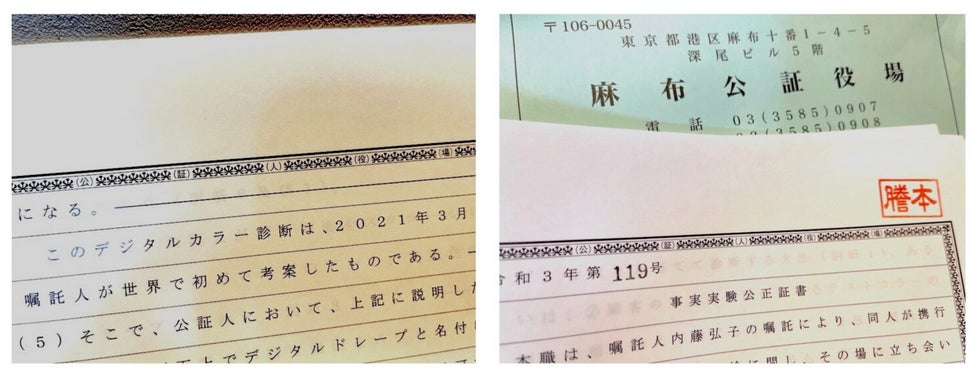 (公) (証) (人) (役) (場)
になる。
このデジタルカラー診断は、2021年3月
嘱託人が世界で初めて考案したものである。
(5)そこで、公証人において、上記に説明した
上でデジタルドレープと名付け
〒106-0045
東京都港区麻布十番1-4-5
深尾ビル5階
麻布公証役場
電話 03(3585)0907
03(3585)0908
謄本
(公) (証) (人) (役) (場)
令和3年第119号
事実実験公正証書
本職は、嘱託人内藤弘子の嘱託により、同人が携行
に関し、その場に立ち会い